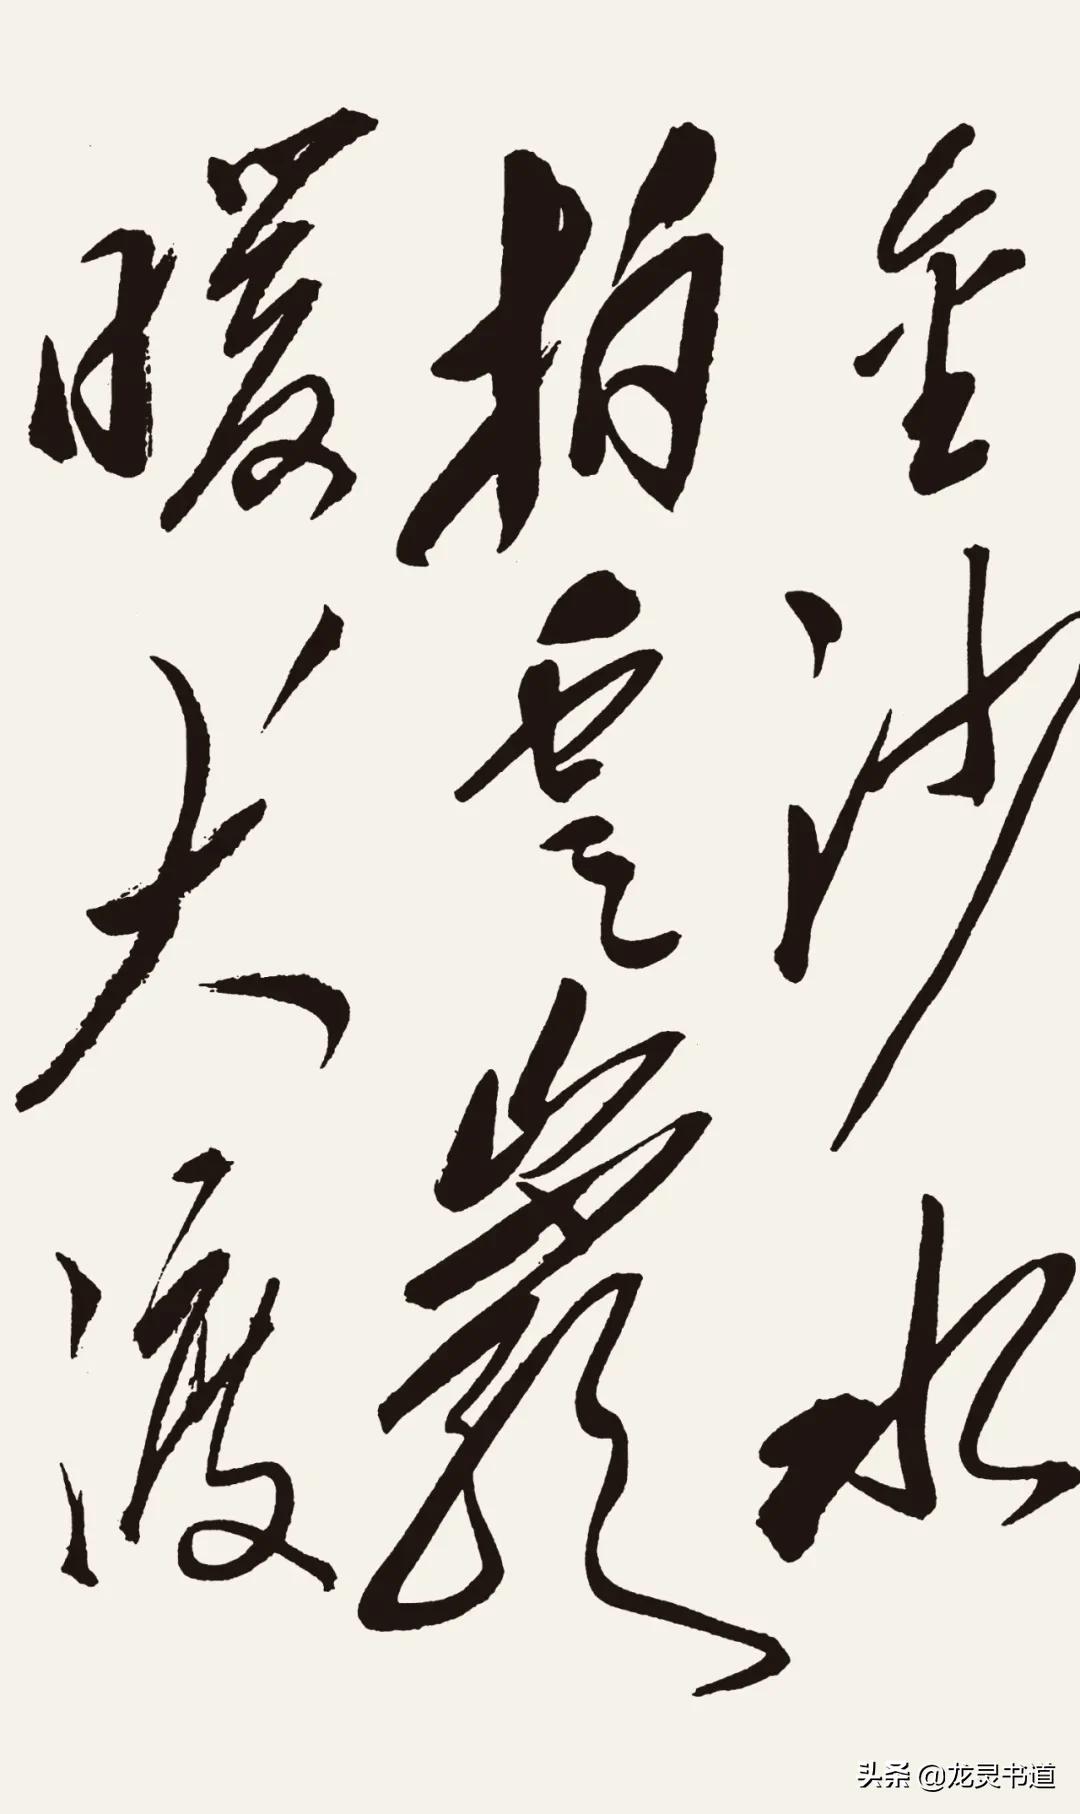 金沙水
拍雲巖
暖大渡
头条 @龙灵书道